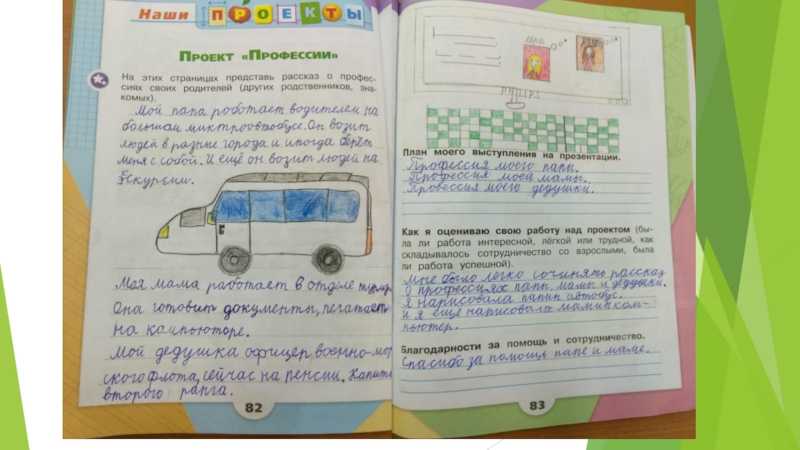 Наши ПРОЕКТЫ
ПРОЕКТ «ПРОФЕССИИ»
На этих страницах представь рассказ о профес-
сиях своих родителей (других родственников, зна-
комых).
Мой папа роботает водителем на
большам миктроовтобусе. Он возит
людей в разные города и иногда берёт
меня с собой. И ещё он возит людей на
Екскурсии.
Моя мама работает в отделе
Она готовит документы, печатает
на кампьютере.
Мой дедушка офицер военно-мор
ского флота, сейчас на пенсии. Капита
второго ранга.
82
PHILIPS
План моего выступления на презентации.
Профессия моего папы.
Профессия моей мамы.
Провессия моего дедушки.
Как я оцениваю свою работу над проектом (бы-
ла ли работа интересной, лёгкой или трудной, как
складывалось сотрудничество со взрослыми, была
ли работа успешной).
Мне было легко сочинять рассказ
о професиях папы, мамы и дедушки.
Я нарисовала папин автобус.
и я ещё нарисовала мамин ком-
пьютер.
Благодарности за помощь и сотрудничество.
Спасибо за помощь папе и маме.
83